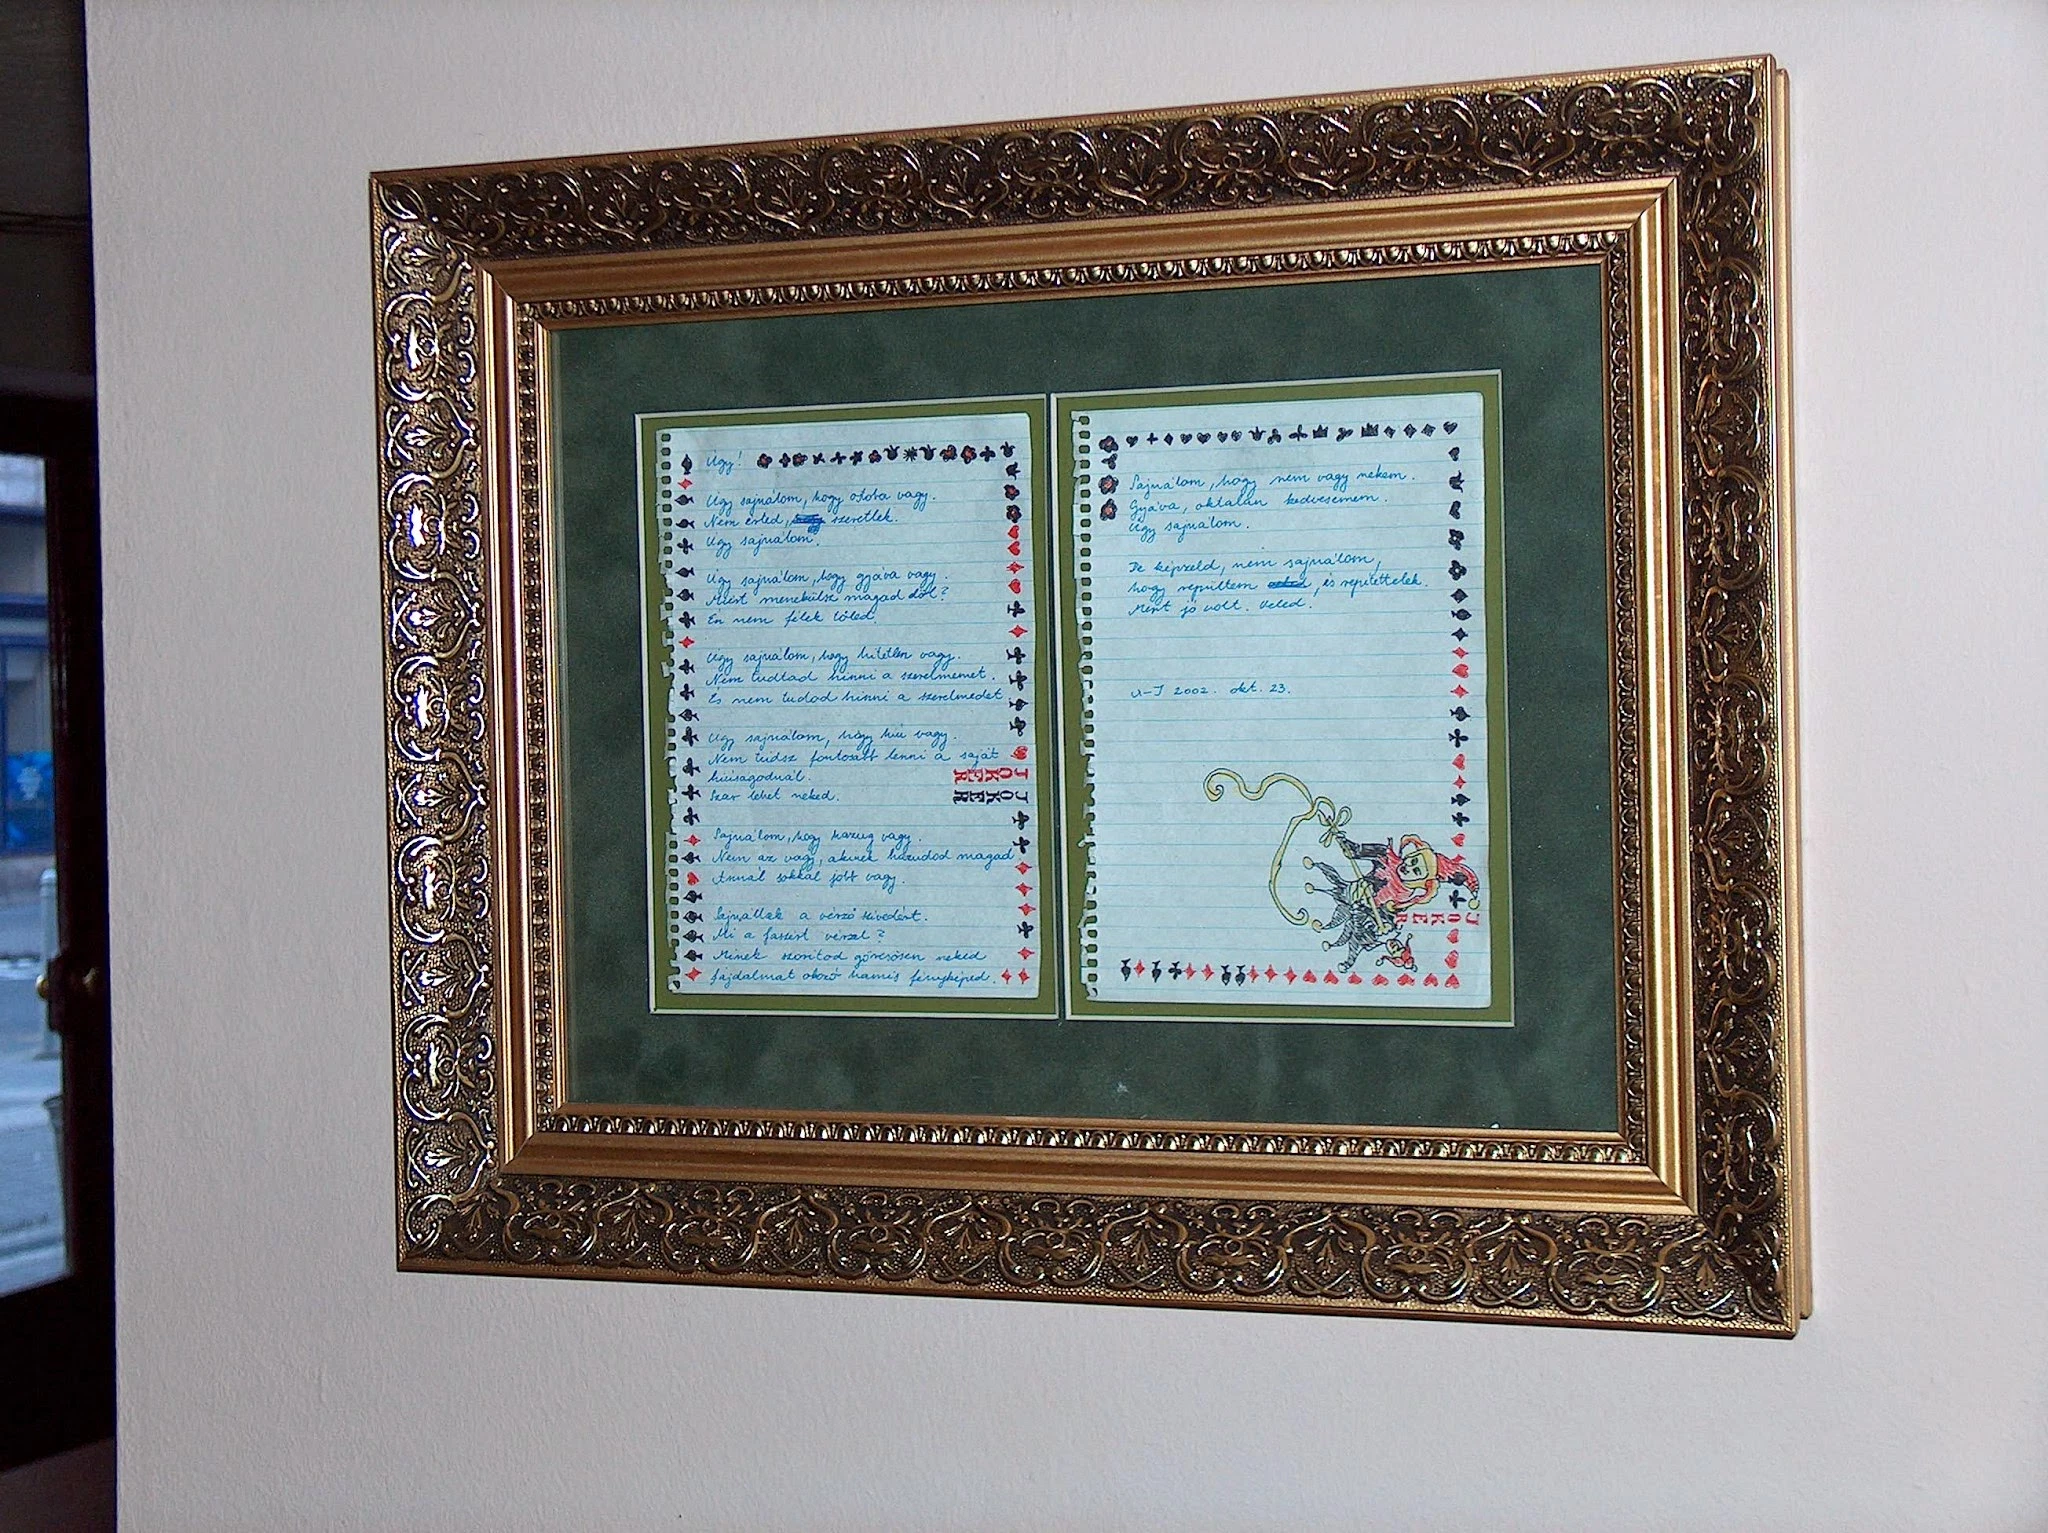 Úgy!
Úgy sajnálom, hogy ostoba vagy.
Nem érted, szeretlek.
Úgy sajnálom.
Úgy sajnálom, hogy gyáva vagy.
Miért menekülsz magad elől?
Én nem félek tőled.
Úgy sajnálom, hogy hitetlen vagy.
Nem tudtad hinni a szerelmemet.
És nem tudod hinni a szerelmedet
Úgy sajnálom, hogy hiú vagy.
Nem tudsz fontosabb lenni a saját
hiúságodnál.
Szar lehet neked.
Sajnálom, hogy hazug vagy.
Nem az vagy, akinek hazudod magad
Annál sokkal jobb vagy.
Sajnállak a vérző szívedért.
Mi a faszért vérzel?
Minek szorítod görcsösen neked
fájdalmat okozó hamis fényképed.
JOKER
JOKER
Sajnálom, hogy nem vagy nekem.
Gyáva, oktalan kedvesemem.
Úgy sajnálom.
De képzeld, nem sajnálom,
hogy repültem, és repítettelek.
Mert jó volt. Veled.
2002. okt. 23.
JOKER